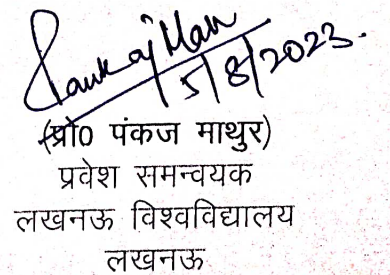 Pankaj
15/8/2023.
(प्रो0 पंकज माथुर)
प्रवेश समन्वयक
लखनऊ विश्वविद्यालय
लखनऊ